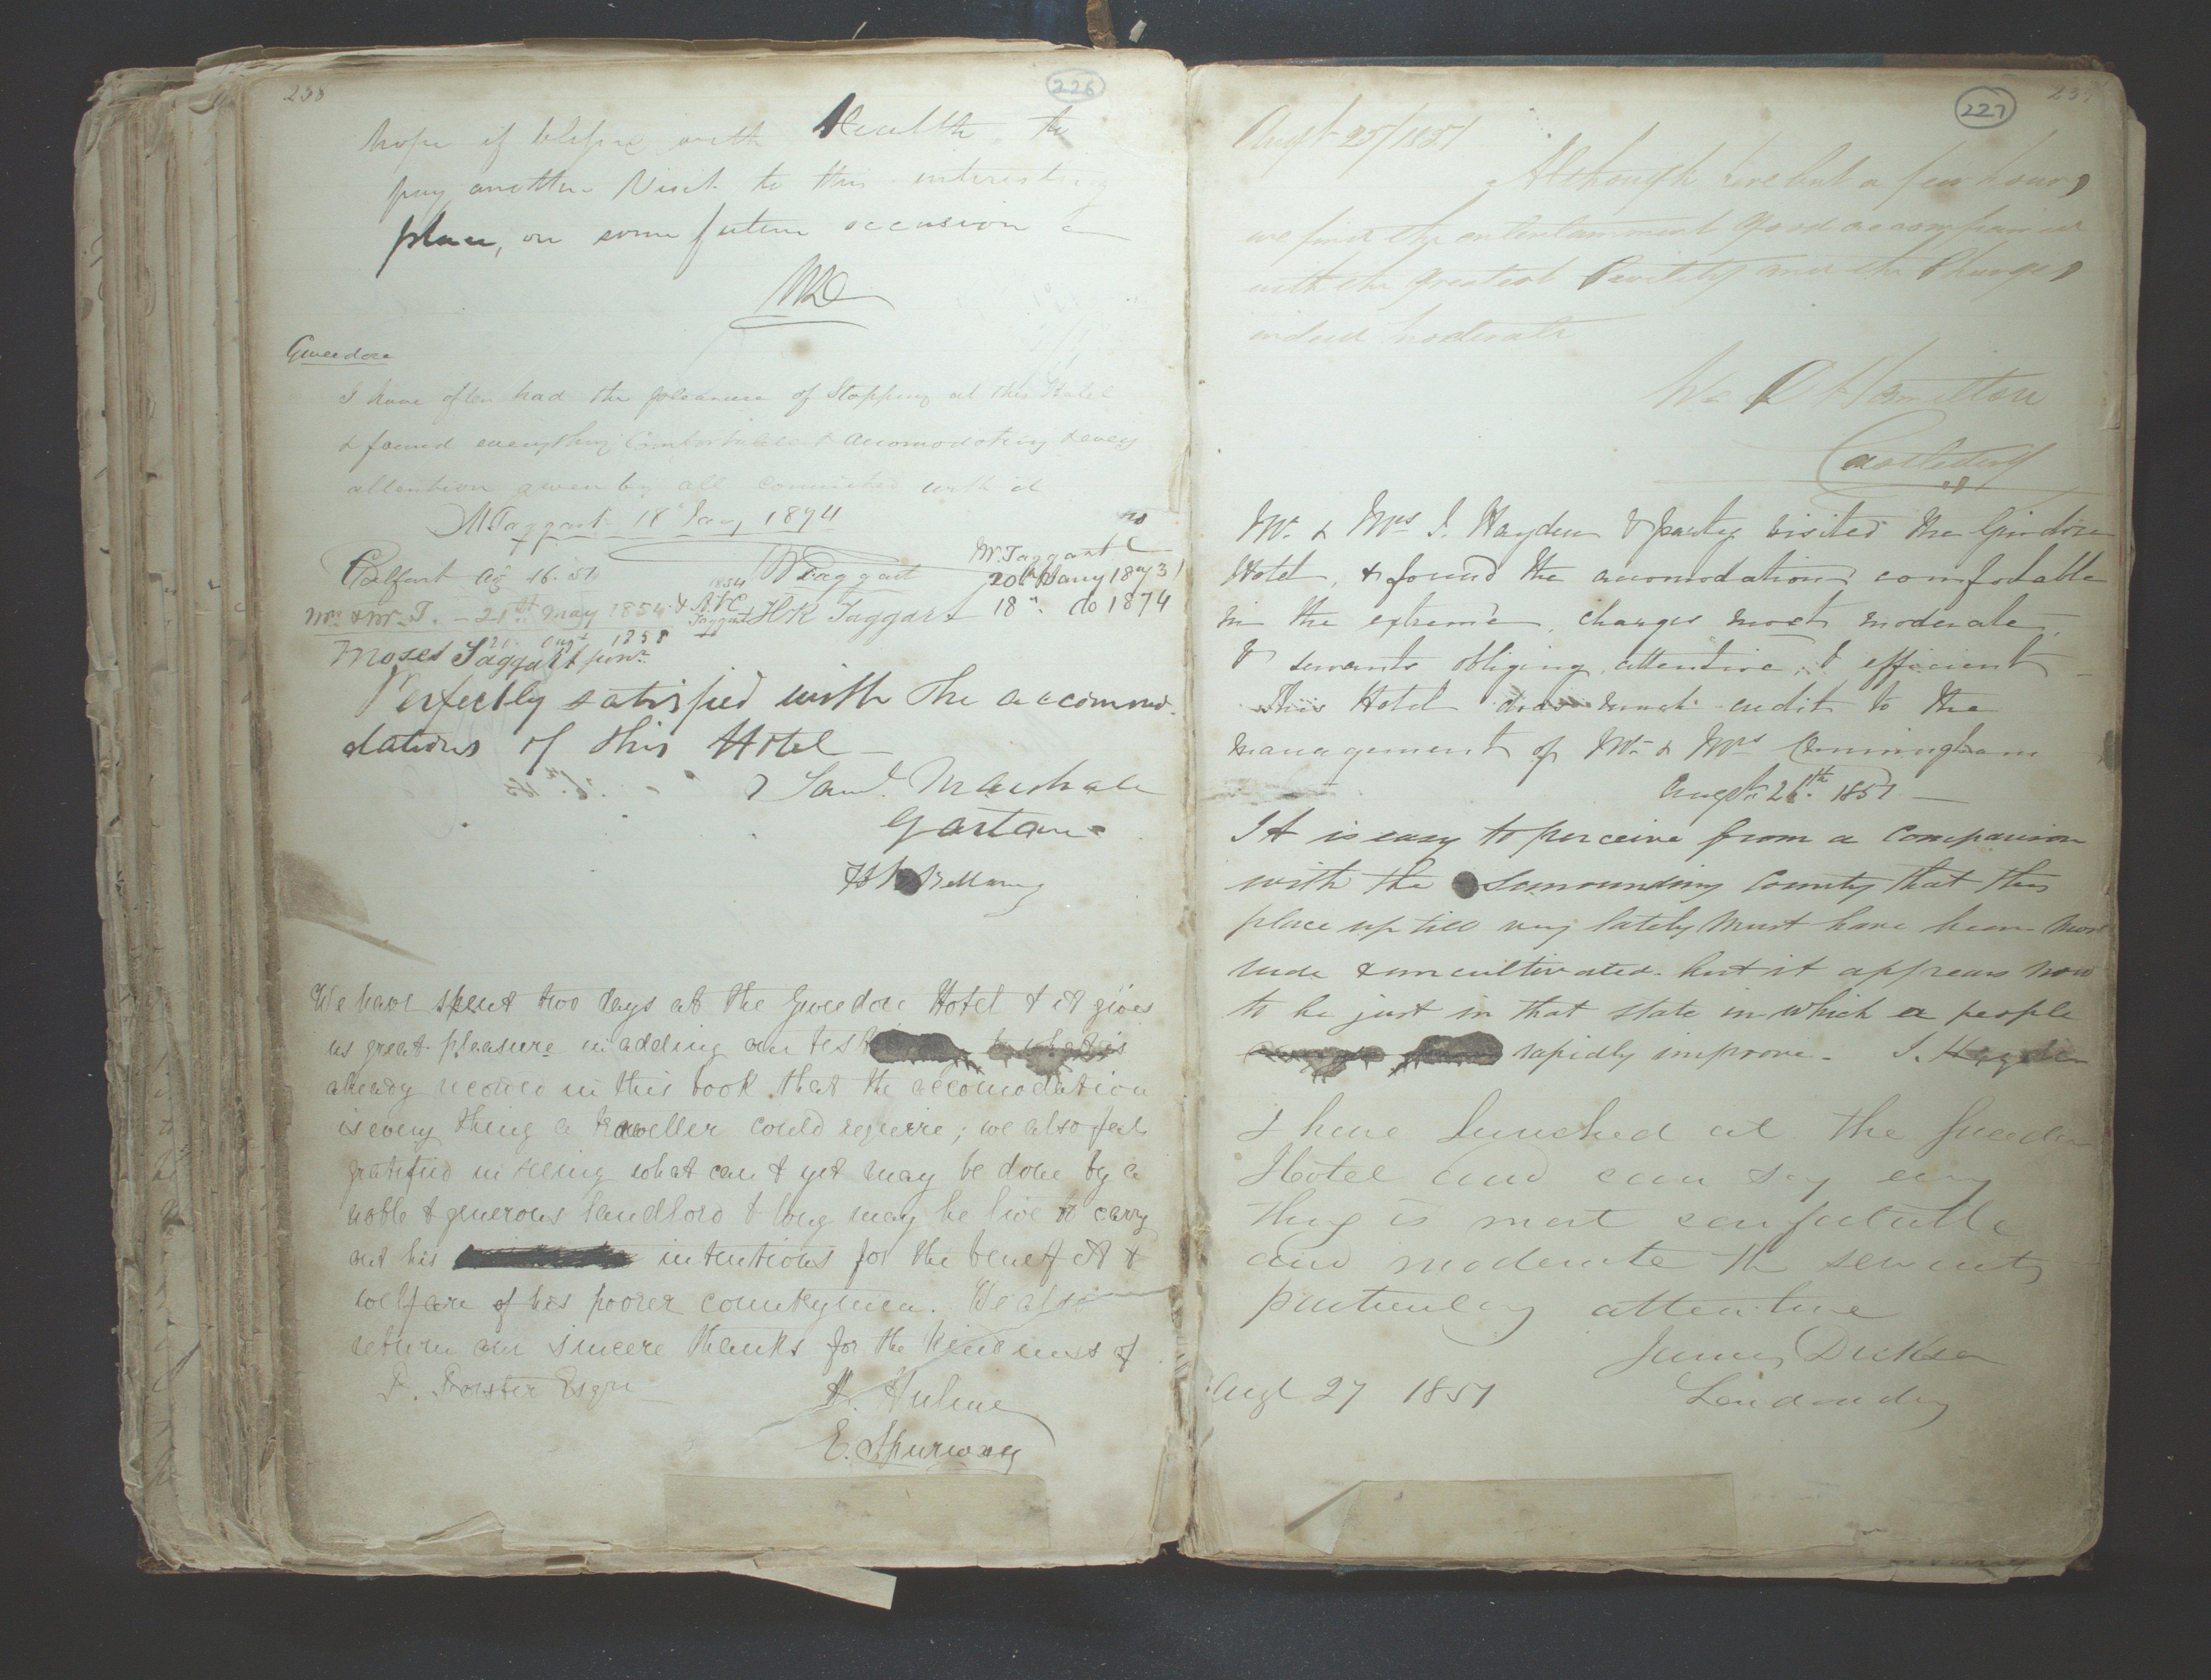 238
226
hope if blessed with Health to
pay another Visit to this interesting
place, on some future occasion
Gweedore
I have often had the pleasure of Stopping at this Hotel
& found everything Comfortable & accomodating & every
attention given by all connected with it
M Taggart 18 Jany 1894
Belfast Ag 16. 51
W Taggart
M Taggart
20th Jany 1873
Mr & Mrs T. - 21st May 1854 &
1854
Taggart
HK Taggart
18 " do 1874
20 Augt 1858
Moses Taggart junr
Perfectly satisfied with the accommo
dations of this Hotel
Saml. Marshall
Gartan
Bellamy
We have spent two days at the Gweedore Hotel & it gives
us great pleasure in adding our test to what is
already recorded in this book that the accomodation
is every thing a traveller could require; we also feel
gratified in seeing what can & yet may be done by a
noble & generous landlord & long may he live to carry
out his intentions for the benefit &
welfare of his poorer countrymen. We also
return our sincere thanks for the kindness of
F. Forster Esqre
H. Hulme
E. Spurway
227
Augt 25/1851
Although here but a few hours
we find the entertainment good accompanied
with the greatest Civility and the Charges
indeed moderate
Wm Hamilton
Castlederg
Mr. & Mrs J. Hayden & party visited the Guidore
Hotel, & found the accomodations comfortable
in the extreme, charges most moderate,
& servants obliging, attentive, & efficient
This Hotel does much credit to the
management of Mr & Mrs Cunningham
Augst 26th 1851
It is easy to perceive from a comparison
with the surrounding County that this
place up till very lately must have been most
rude & uncultivated. but it appears now
to be just in that state in which a people
rapidly improve. J. Hayden
I have lunched at the Gweedore
Hotel and can say every
thing is most comfortable
and moderate the servants
particularly attentive
James Dickson
Augt 27 1851
Londonderry